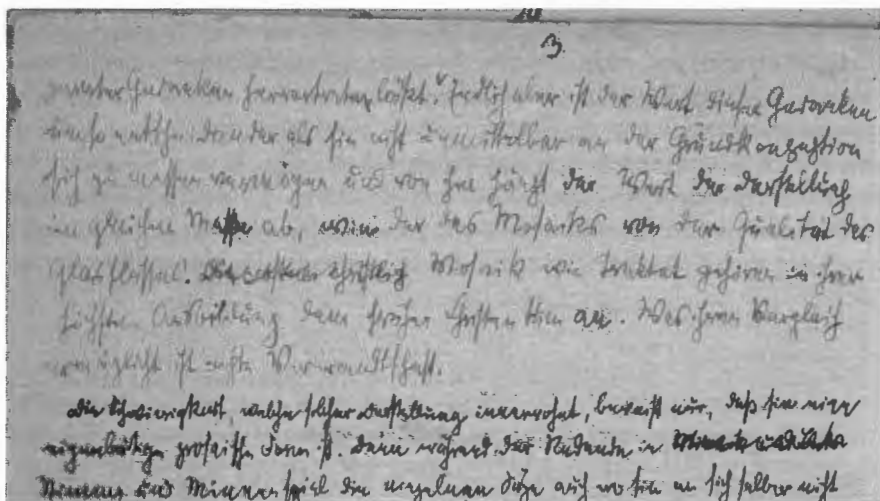 3
Gedanken hervortreten läßt. Endlich aber ist der Wert dieser Gedanken
umso entscheidender als sie nicht unmittelbar an der Grundkonzeption
sich zu messen vermögen und von ihm hängt der Wert der Darstellung
im gleichen Maße ab, wie der des Mosaiks von der Qualität des
Glasflusses. Mosaik wie Traktat gehören in ihrer
höchsten Ausbildung dem frühen Christentum an. Was ihren Vergleich
ermöglicht ist echte Verwandtschaft.
Die Schwierigkeit, welche solcher Darstellung innewohnt, beweist nur, daß sie eine
eigenbürtige prosaische Form ist. Denn während der Redende in
Stimme und Mienenspiel die einzelnen Sätze auch wo sie an sich selber nicht